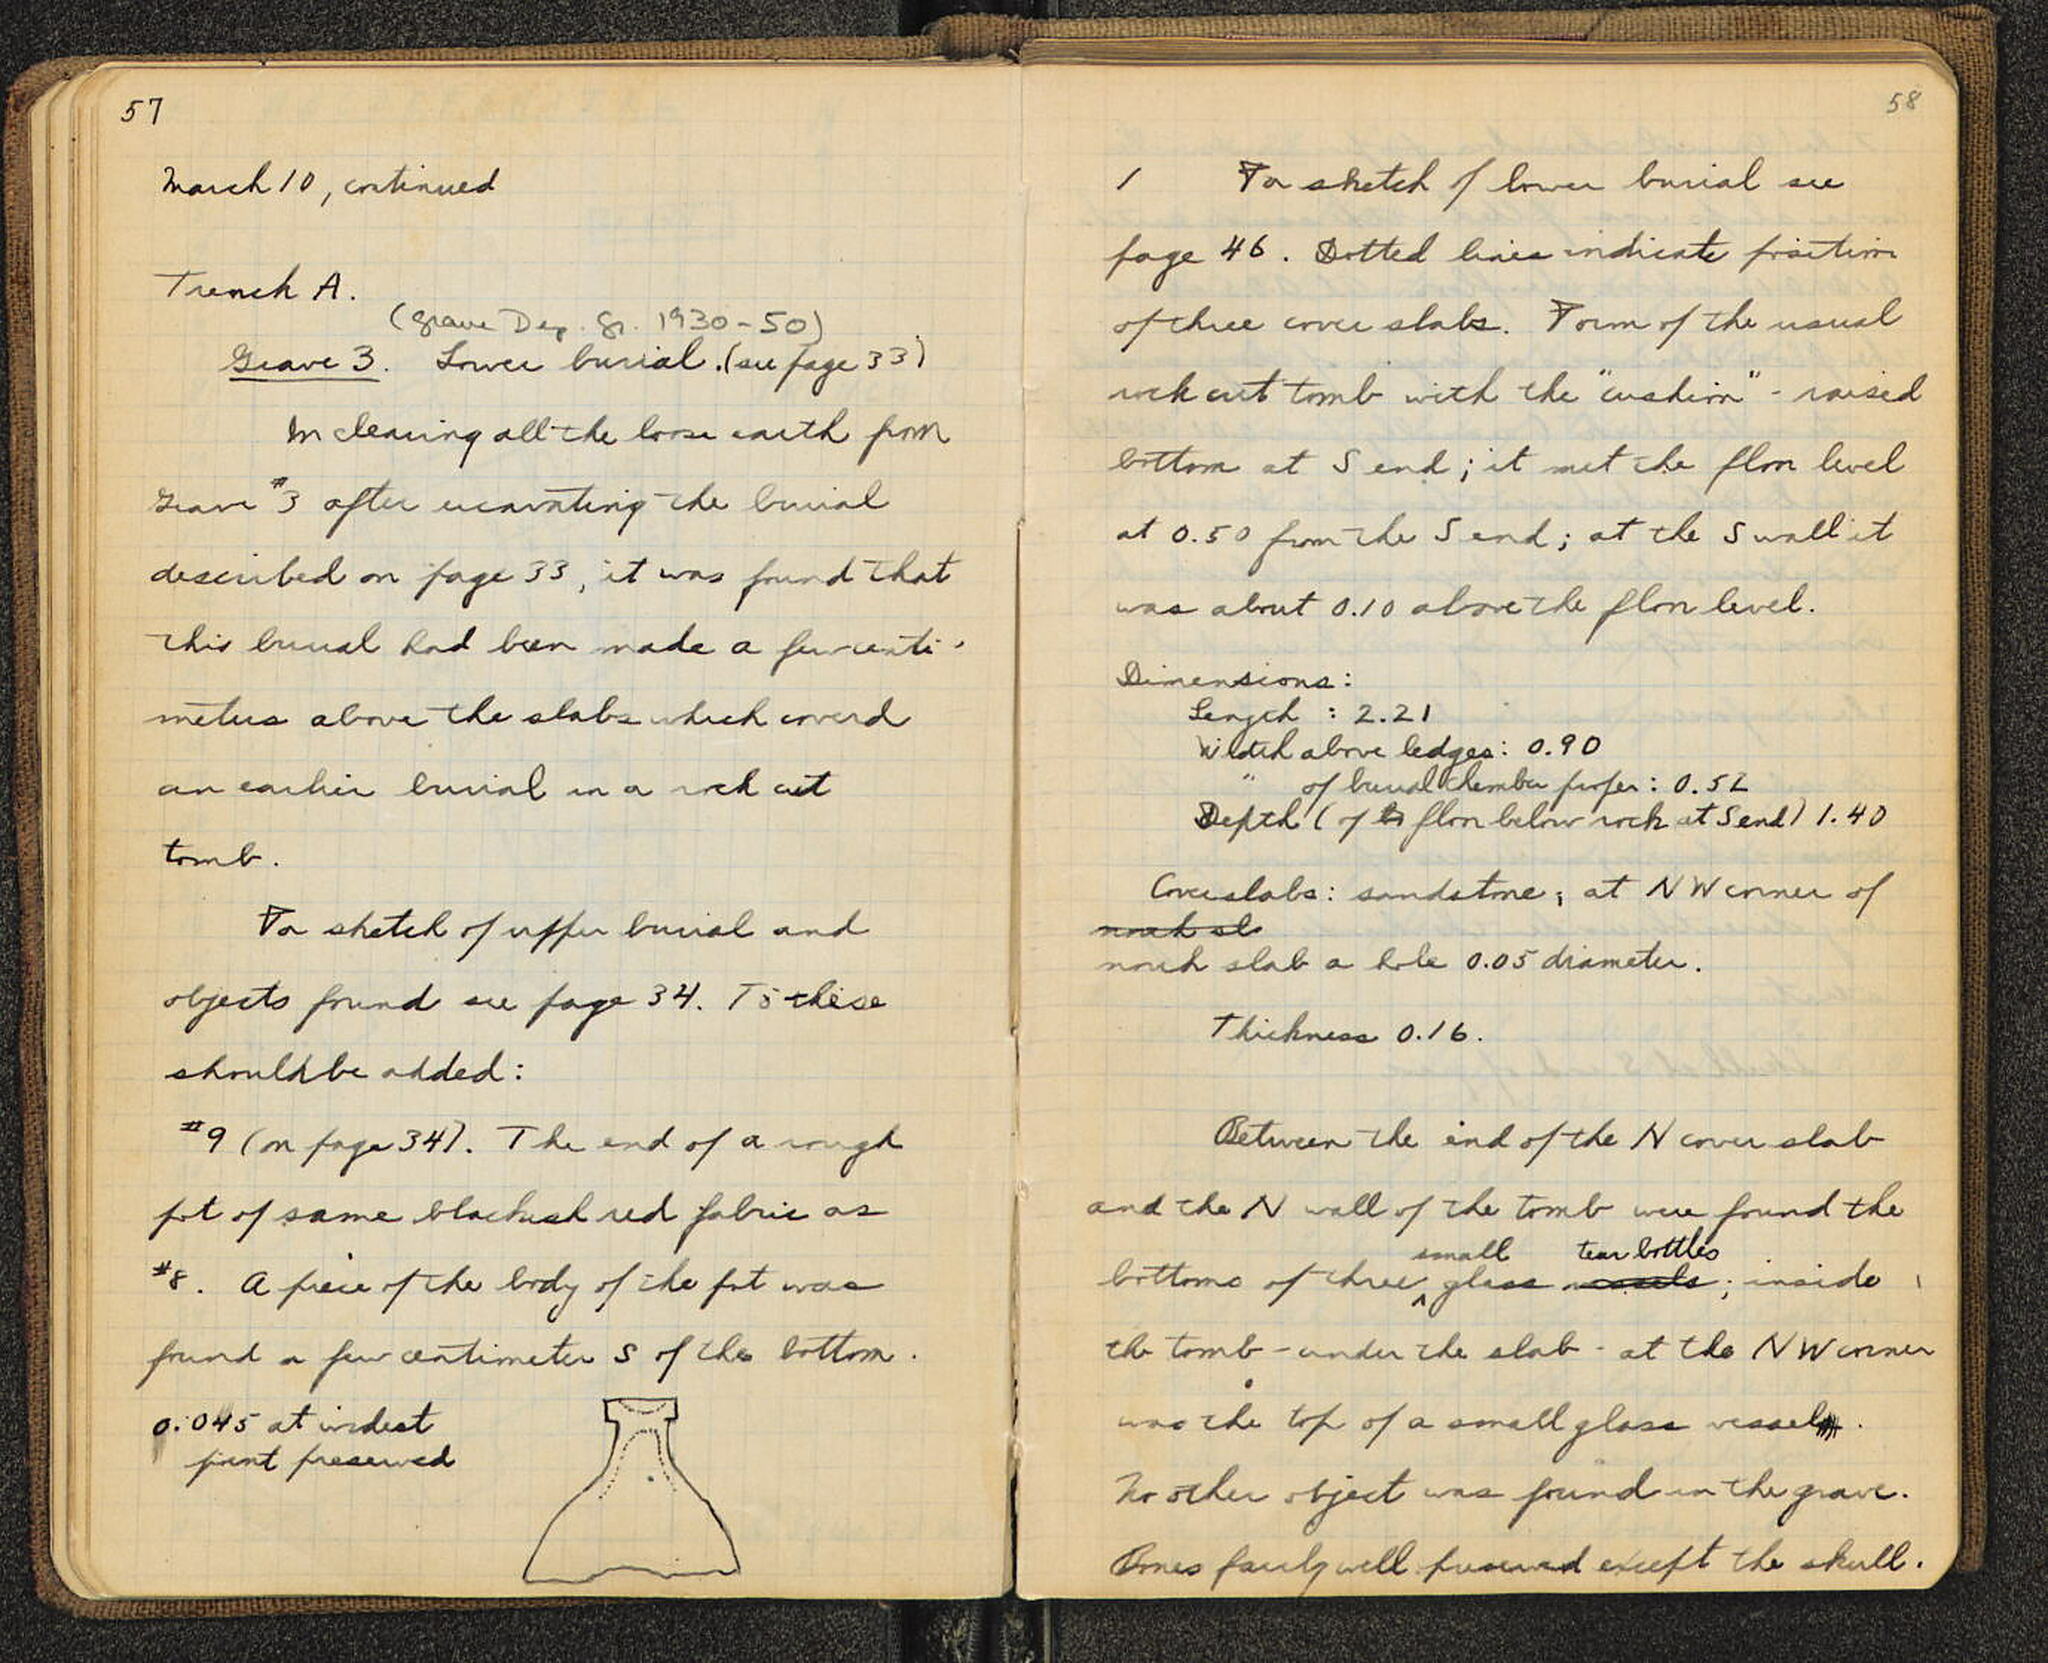 57
March 10, continued
Trench A.
(grave Dep. Gr. 1930-50)
Grave 3. Lower burial. (see page 33)
In clearing all the loose earth from
Grave #3 after excavating the burial
described on page 33, it was found that
this burial had been made a few centi-
meters above the slabs which coverd
an earlier burial in a rock cut
tomb.
For sketch of upper burial and
objects found see page 34. To these
should be added:
#9 (on page 34). The end of a rough
pot of same blackish red fabric as
#8. A piece of the body of the pot was
found a few centimeter S of the bottom.
0.045 at widest
point preserved
58
1 For sketch of lower burial see
page 46. Dotted lines indicate position
of three cover slabs. Form of the usual
rock cut tomb with the "cushion" - raised
bottom at S end; it met the floor level
at 0.50 from the S end; at the S wall it
was about 0.10 above the floor level.
Dimensions:
Length : 2.21
Width above ledges: 0.90
" of burial chamber proper: 0.52
Depth (of floor below rock at S end) 1.40
Cover slabs: sandstone; at NW corner of
north sl
north slab a hole 0.05 diameter.
Thickness 0.16.
Between the end of the N cover slab
and the N wall of the tomb were found the
small tear bottles
bottoms of three glass vessels; inside
the tomb - under the slab - at the NW corner
was the top of a small glass vessel.
No other object was found in the grave.
Bones fairly well preserved except the skull.